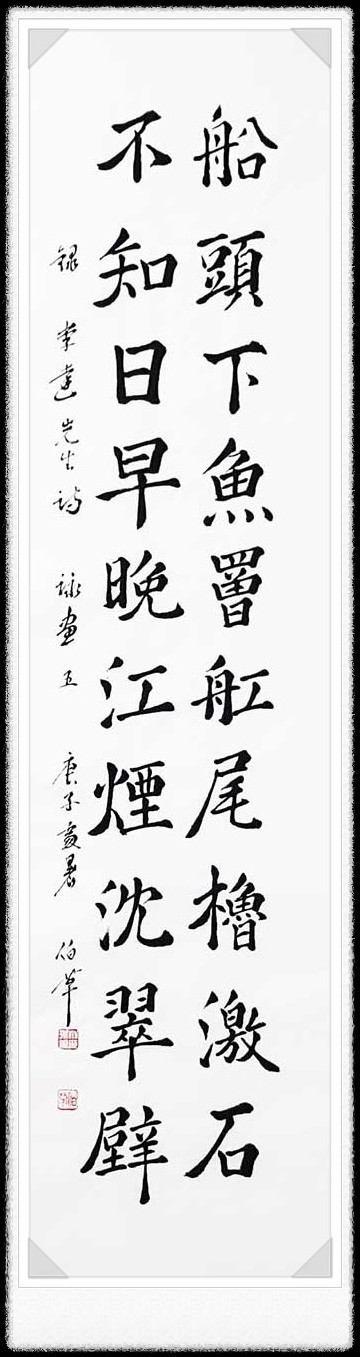 船頭下魚罾舡尾櫓激石
不知日早晚江煙沈翠壁
錄 李達先生詩 詠畫五 庚子處暑 伯華